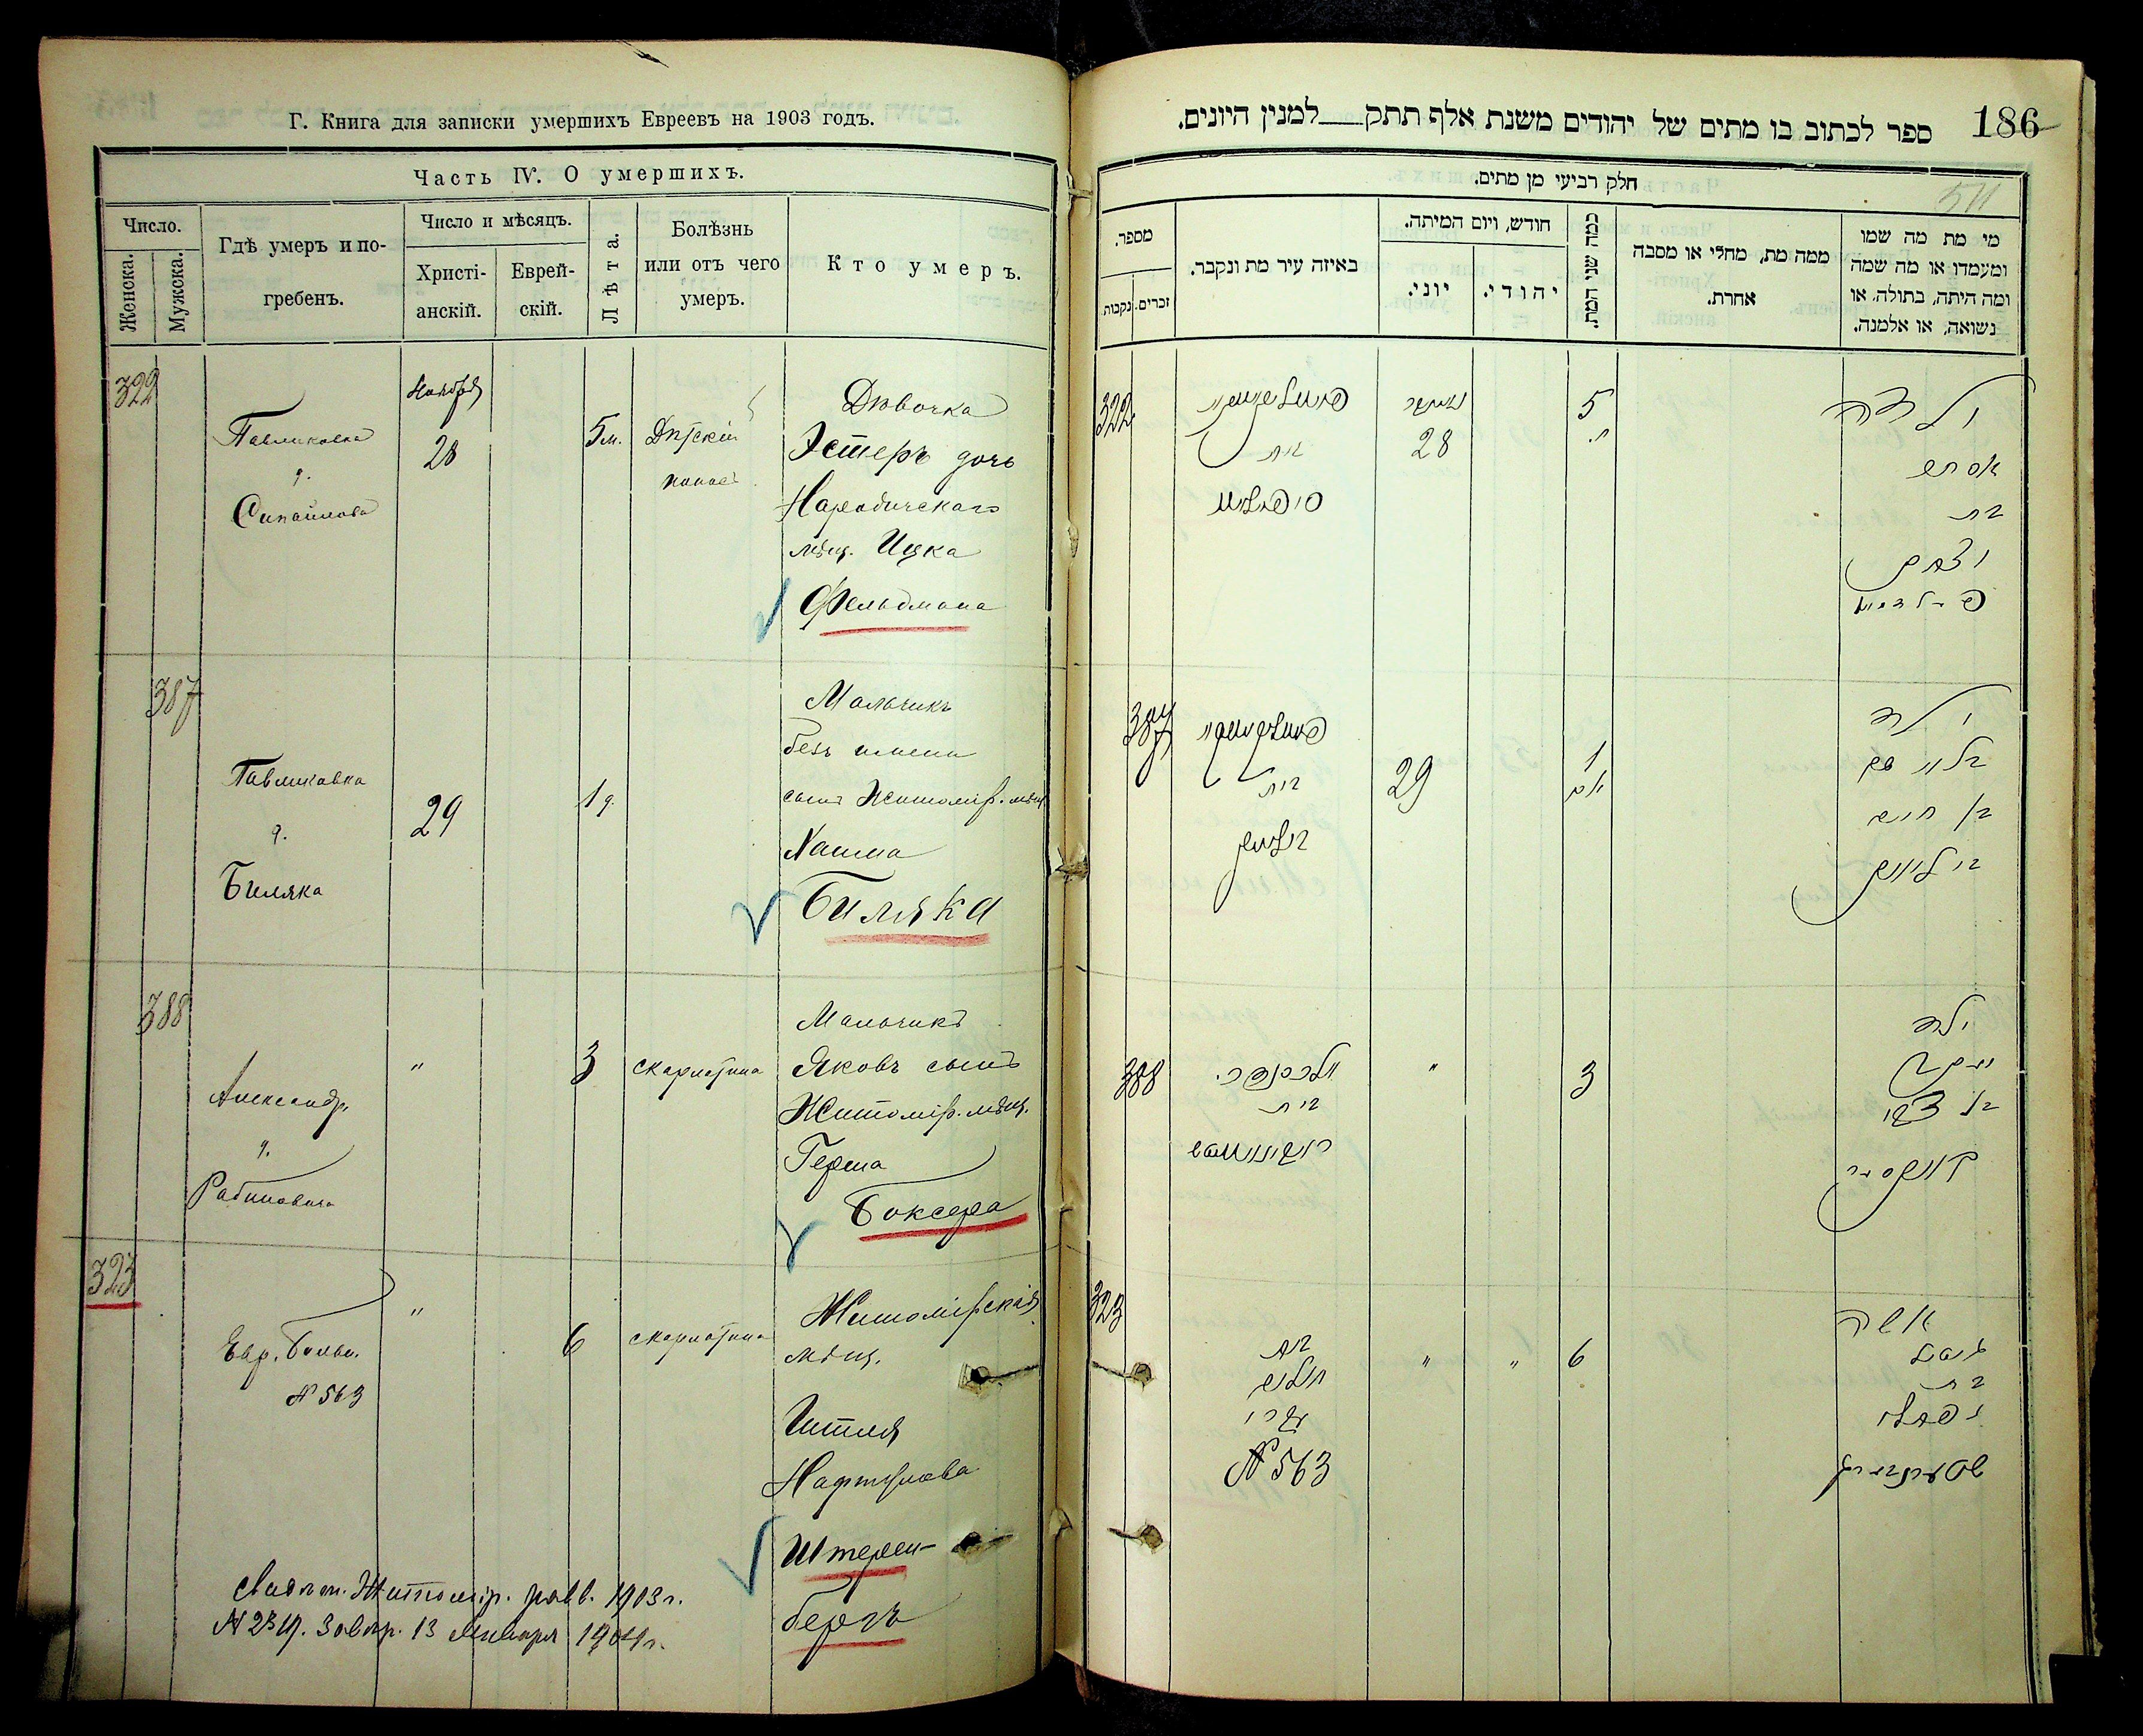 Г. Книга для записки умершихъ Евреевъ на 1903 годъ.
Часть IV. О умершихъ.
Число.
Женска.
Мужска.
Гдѣ умеръ и по-
гребенъ.
Число и мѣсяцъ.
Христі-
анскій.
Еврей-
скій.
Лѣта.
Болѣзнь
или отъ чего
умеръ.
Кто умеръ.
322
Павликовка
д.
Ноября
28
5 м.
Дѣтскій
Дѣвочка
Эстеръ дочь
Народичскаго
мѣщ. Ицка
Фельдмана
387
Павликовка
д.
Биляка
29
1 д.
Мальчикъ
безъ имени
сынъ Житомір. мѣщ
Хаима
Биляка
388
Александр.
д.
Рабиновича
"
3
скарлатина
Мальчикъ
Яковъ сынъ
Житомір. мѣщ.
Герша
Боксера
323
Евр. Больн.
№ 563
"
6
скарлатина
Житомірская
мѣщ.
Гитля
Нафтулова
Штерен-
бергъ
Житомір. равв. 1903 г.
13 Января 1904 г.
186
ספר לכתוב בו מתים של יהודים משנת אלף תתק למנין היונים.
חלק רביעי מן מתים.
מספר.
זכרים.
נקבות
באיזה עיר מת ונקבר.
חודש, ויום המיתה.
יוני.
יהודי.
כמה שני המת.
ממה מת, מחלי או מסבה
אחרת.
מי מת מה שמו
ומעמדו או מה שמה
ומה היתה, בתולה, או
נשואה, או אלמנה.
322
פאוולikאווקי
בית
28
5
ילדה
אסתר
בת
יצחק
פעלדמאן
387
בית
29
1
ילד
בלי שם
בן חיים
ביליאק
388
בית
"
3
ילד
יעקב
בן צבי
באקסער
323
בית
חולים
עברי
№ 563
"
"
6
אשה
גיטל
בת
נפתלי
שטערנבערג